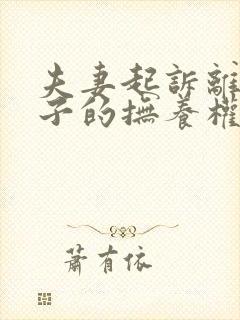 夫妻起訴離
子的撫養權
蕭有依